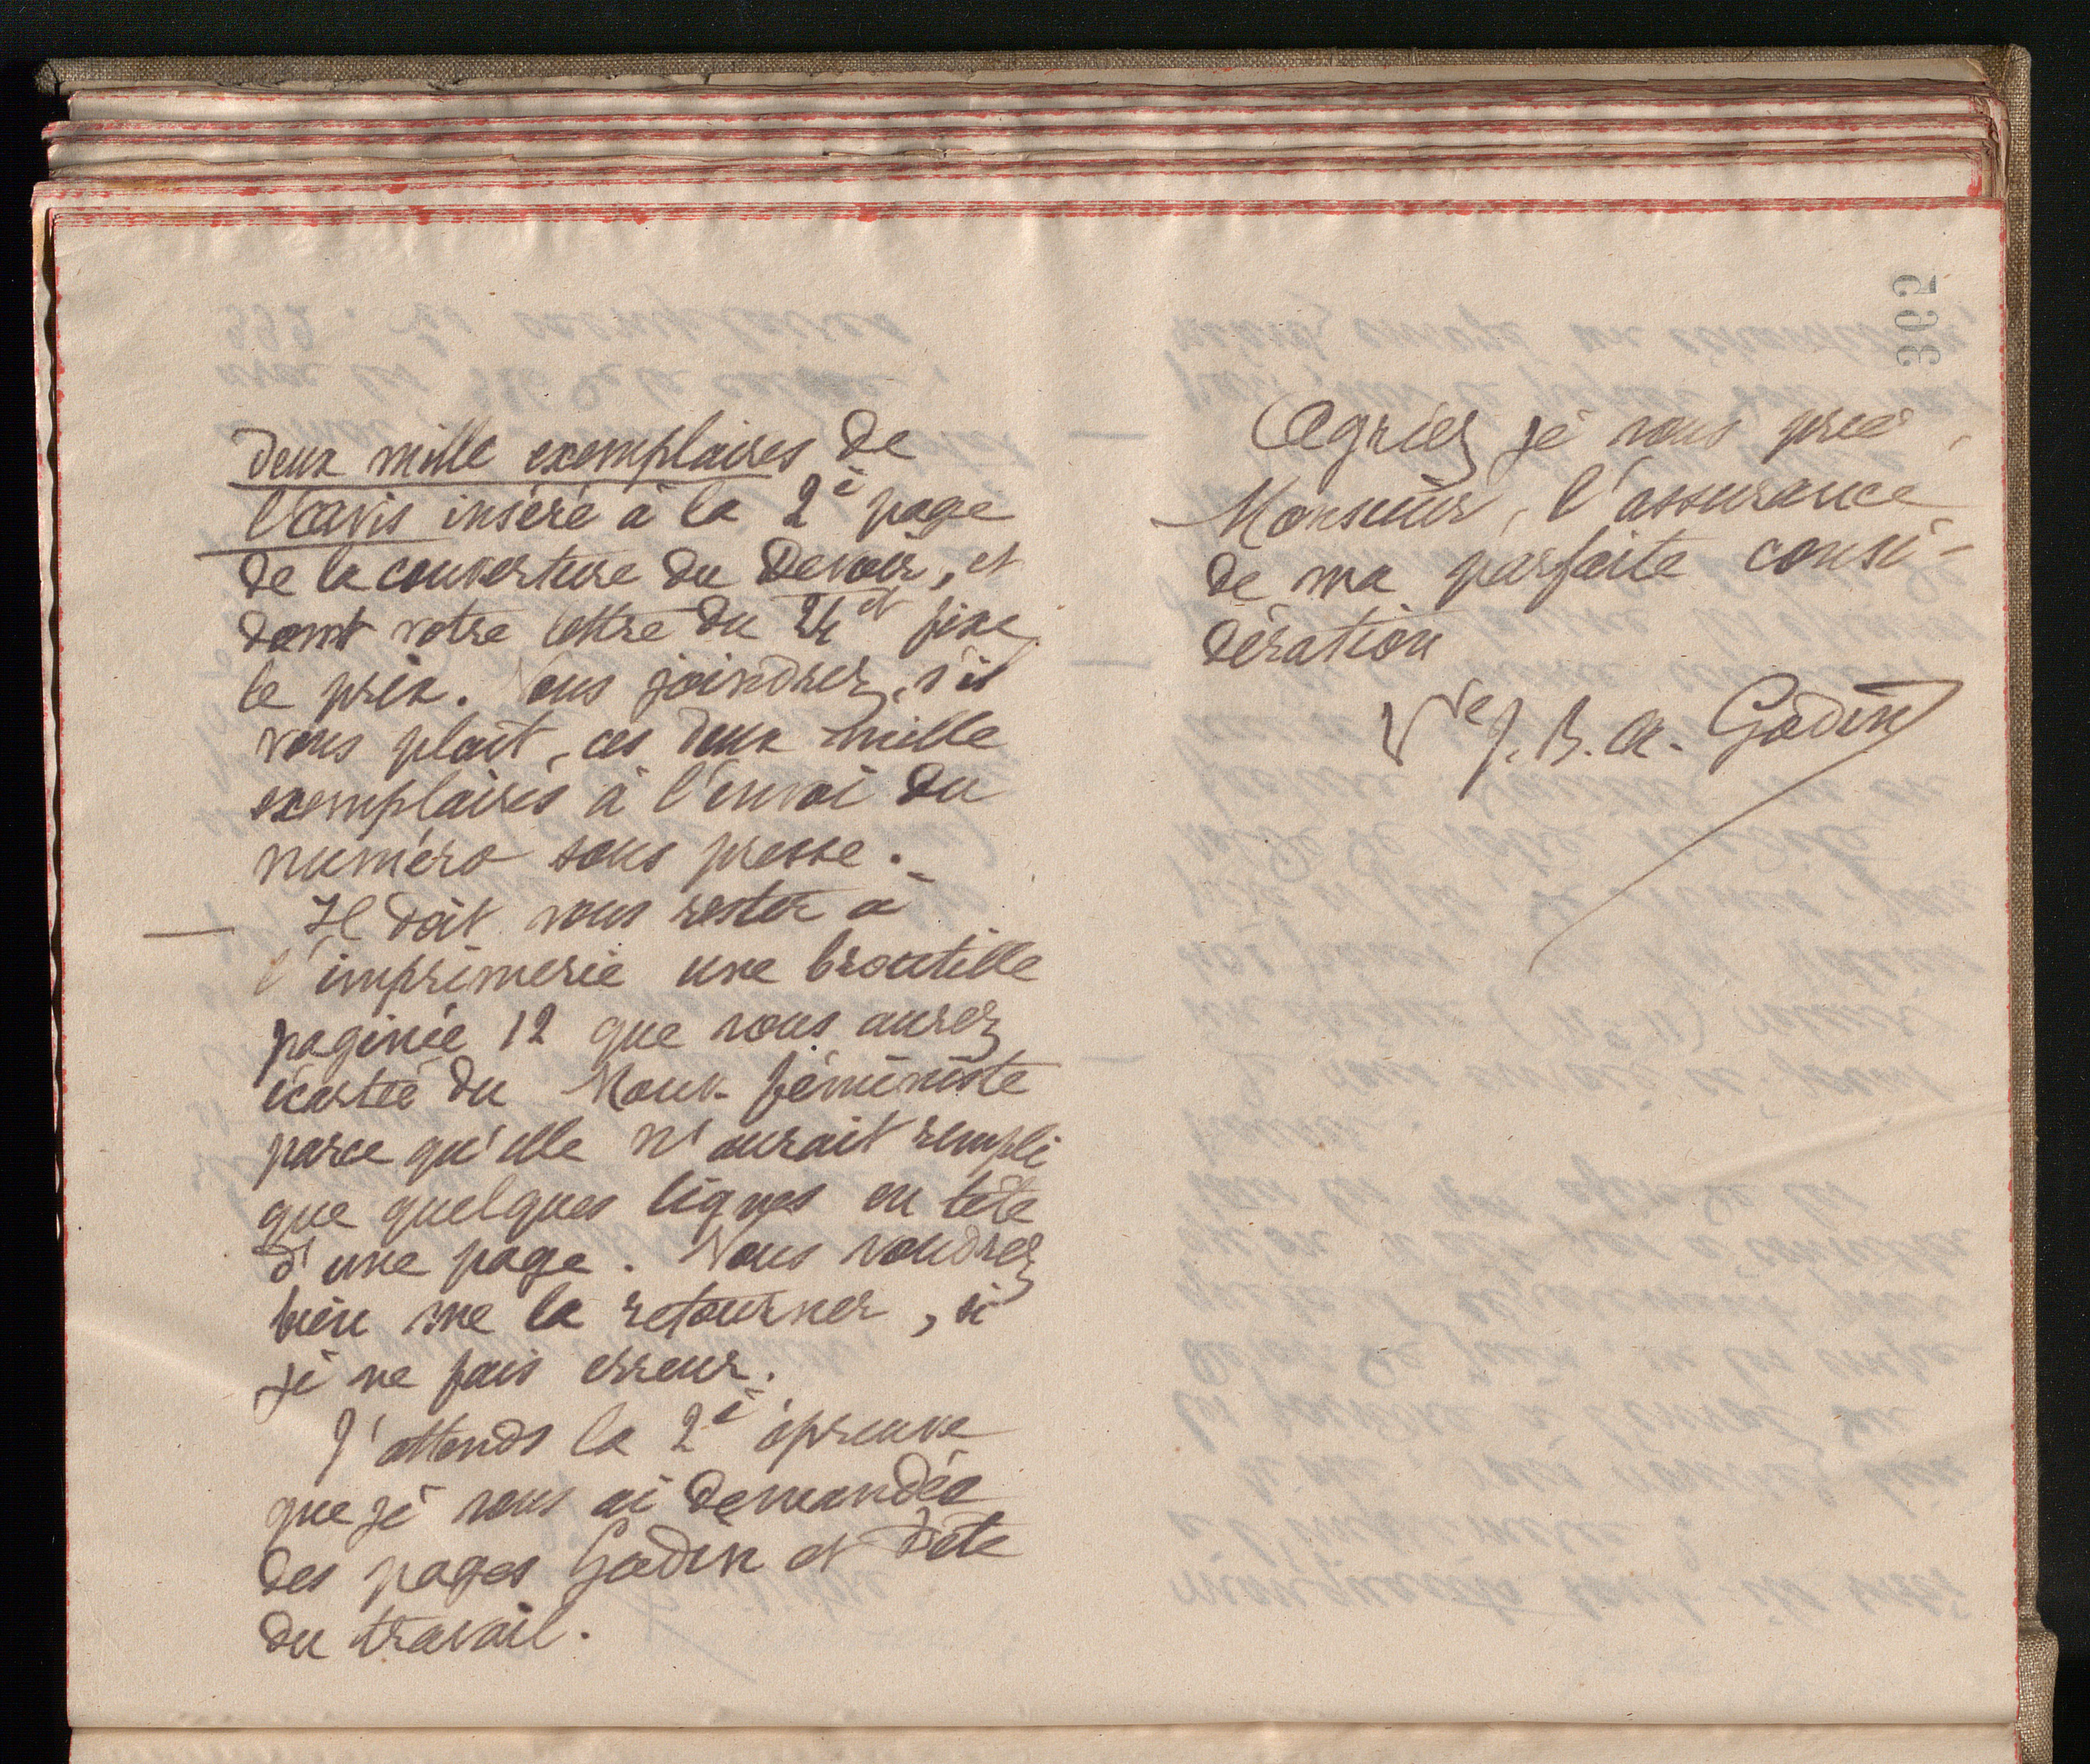 deux mille exemplaires de
l'avis inséré à la 2e page
de la couverture du Devoir, et
dont votre lettre du 24 ct fixe
le prix. Vous joindrez, s'il
vous plaît, ces deux mille
exemplaires à l'envoi du
numéro sous presse.
— Il doit vous rester à
l'imprimerie une broutille
paginée 12 que vous aurez
écartée du Mouv. féministe
parce qu'elle n'aurait rempli
que quelques lignes en tête
d'une page. Vous voudrez
bien me la retourner, si
je ne fais erreur.
J'attends la 2e épreuve
que je vous ai demandée
des pages Godin et Fête
du travail.
365
Agréez je vous prie,
Monsieur, l'assurance
de ma parfaite consi-
dération
Vve J. B. A. Godin